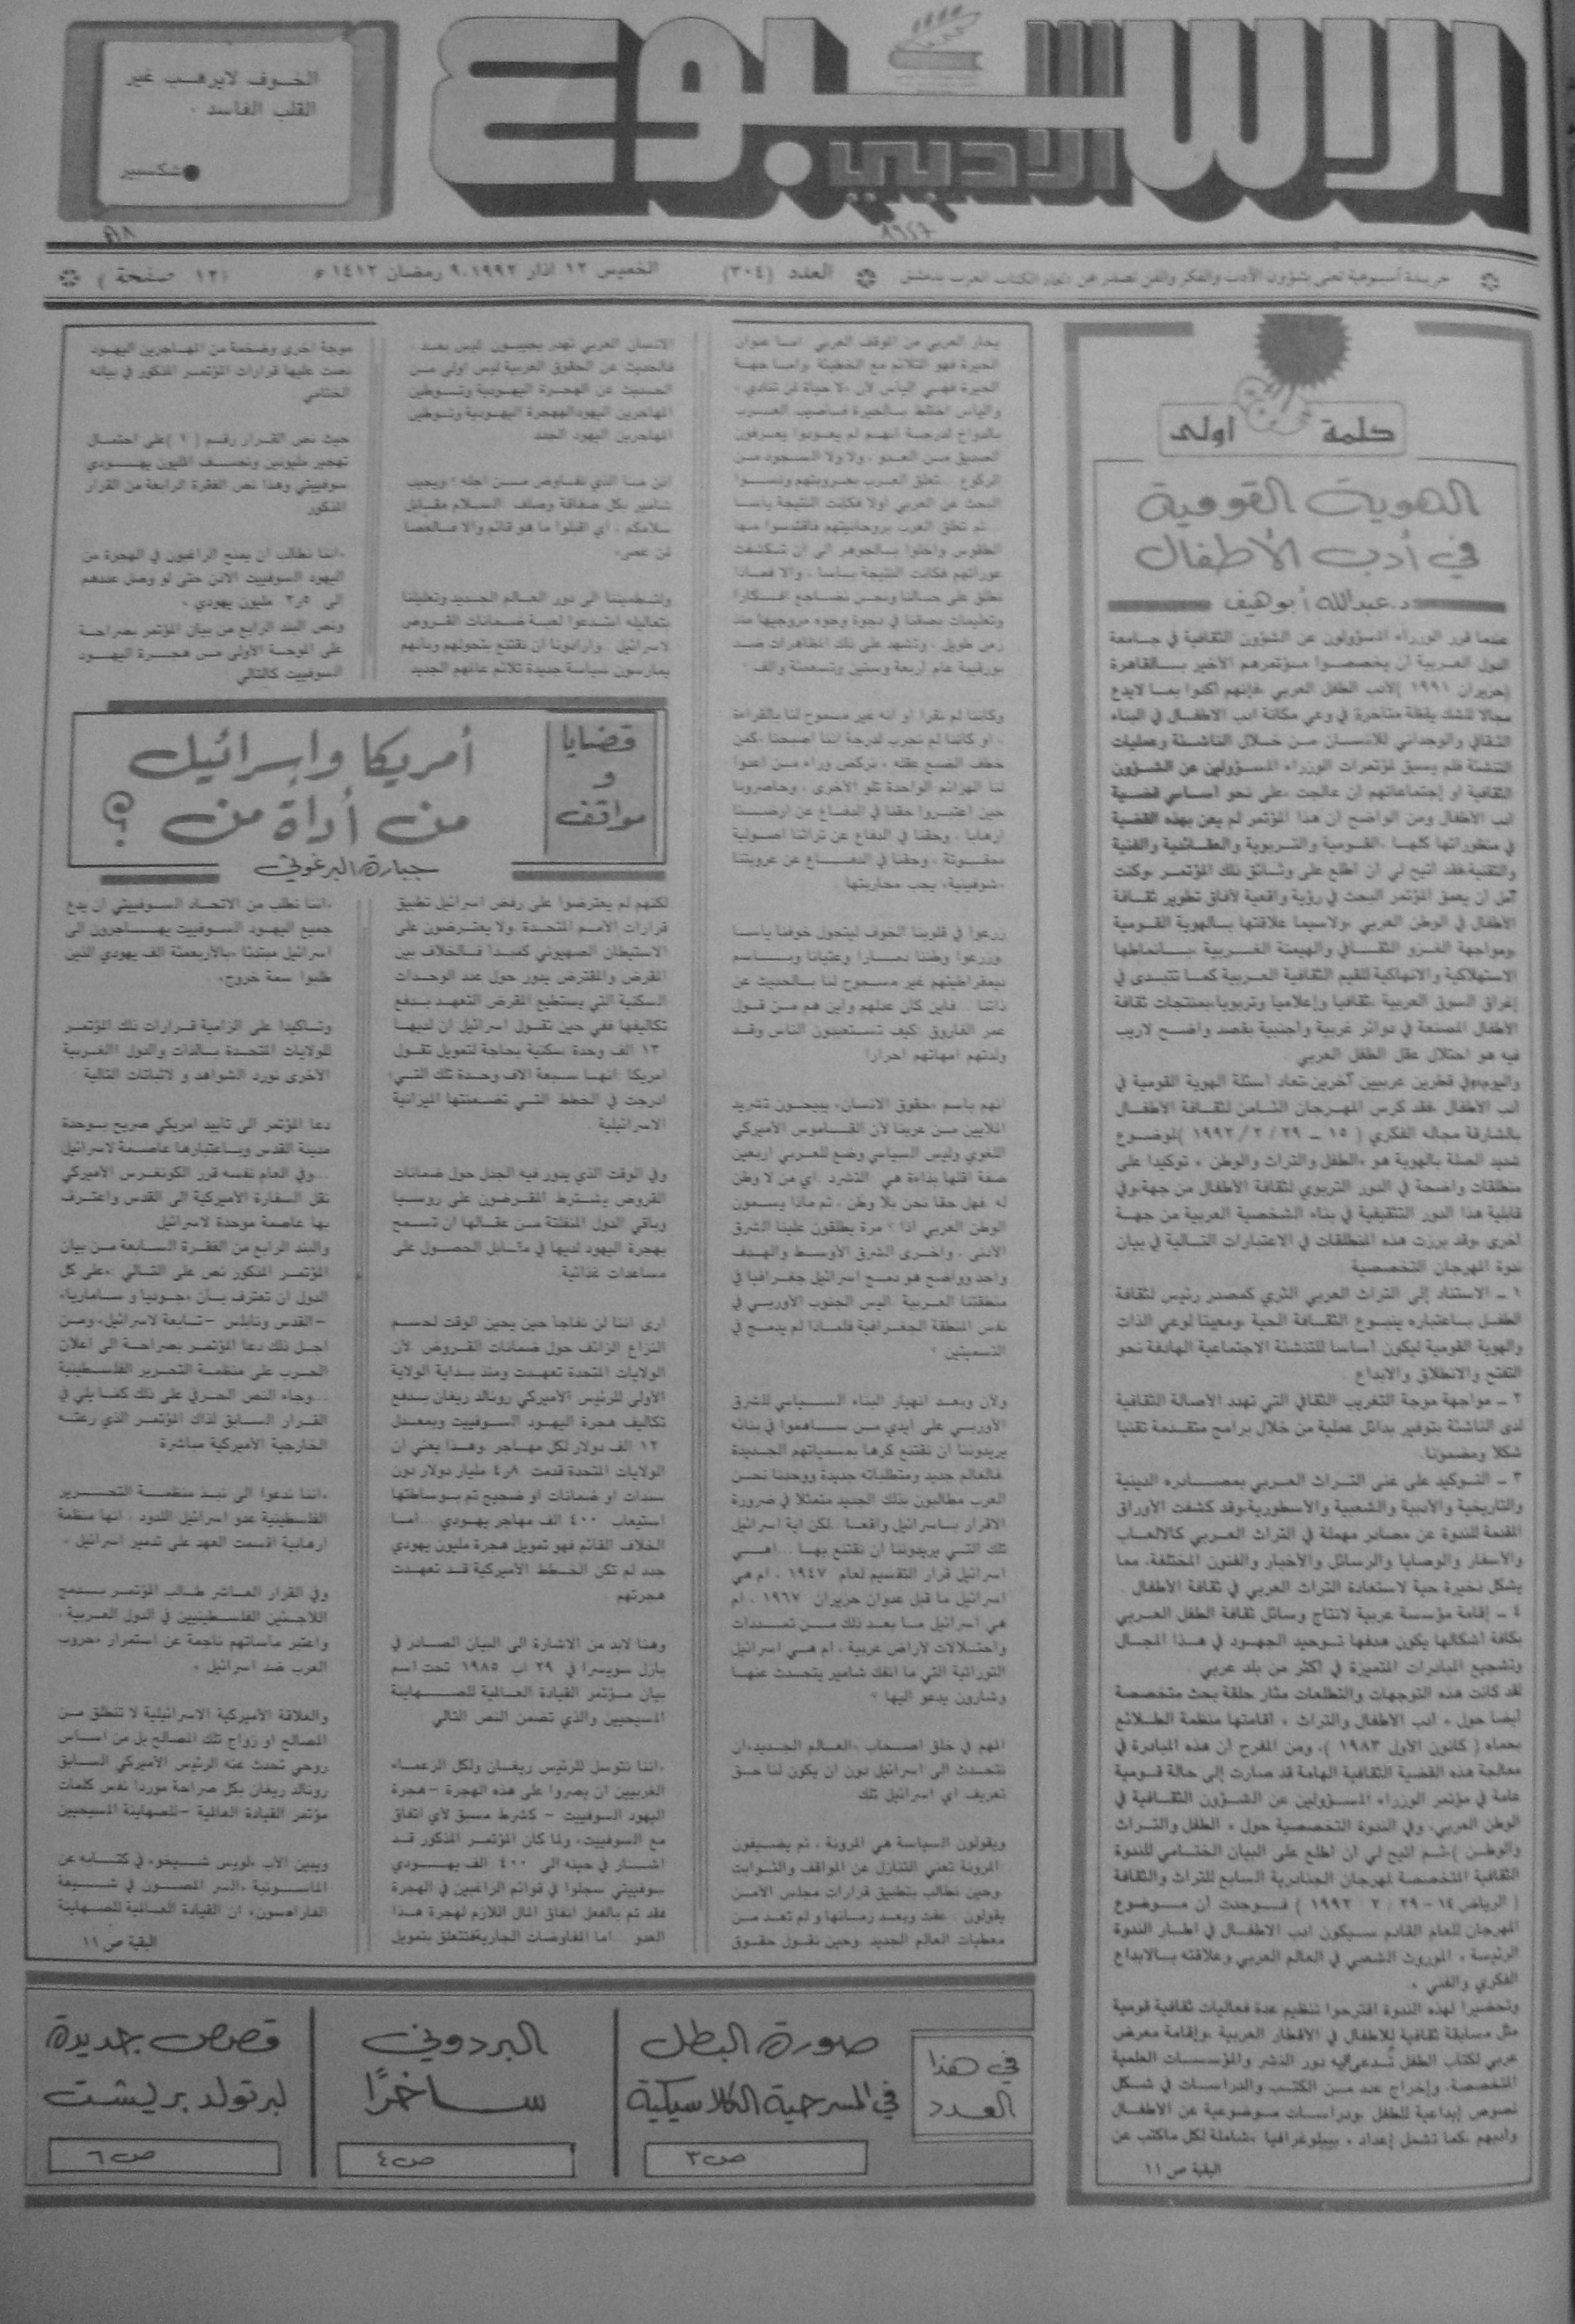 الأسبوع
الأدبي
الخوف لايرهب غير
القلب الفاسد .
شكسبير
جريدة أسبوعية تعنى بشؤون الأدب والفكر والفن تصدر عن اتحاد الكتاب العرب بدمشق
العدد (٣٠٤)
الخميس ١٢ اذار ١٩٩٢، ٩ رمضان ١٤١٢ ه
(١٢ صفحة)
كلمة أولى
الهوية القومية
في أدب الأطفال
د. عبدالله أبو هيف
عندما قرر الوزراء المسؤولون عن الشؤون الثقافية في جامعة
الدول العربية أن يخصصوا مؤتمرهم الأخير بالقاهرة
(حزيران ١٩٩١) لأدب الطفل العربي ،فإنهم أكدوا بما لايدع
مجالا للشك يقظة متأخرة في وعي مكانة أدب الاطفال في البناء
الثقافي والوجداني للانسان من خلال الناشئة وعمليات
التنشئة فلم يسبق لمؤتمرات الوزراء المسؤولين عن الشؤون
الثقافية او إجتماعاتهم ان عالجت ،على نحو اساسي قضية
أدب الأطفال ومن الواضح أن هذا المؤتمر لم يعن بهذه القضية
في منظوراتها كلها ،القومية والتربوية والعقائدية والفنية
والتقنية،فقد أتيح لي أن اطلع على وثائق ذلك المؤتمر ،وكنت
آمل أن يعمق المؤتمر البحث في رؤية واقعية لآفاق تطوير ثقافة
الأطفال في الوطن العربي ،ولاسيما علاقتها بالهوية القومية
،ومواجهة الغزو الثقافي والهيمنة الغربية ،بانماطها
الاستهلاكية والانهاكية للقيم الثقافية العربية كما تتبدى في
إغراق السوق العربية ،ثقافيا وإعلاميا وتربويا،بمنتجات ثقافة
الأطفال المصنعة في دوائر غربية وأجنبية بقصد واضح لاريب
فيه هو احتلال عقل الطفل العربي .
واليوم،وفي قطرين عربيين آخرين،تعاد أسئلة الهوية القومية في
أدب الأطفال ،فقد كرس المهرجان الثامن لثقافة الأطفال
بالشارقة مجاله الفكري (١٥ ـ ٢٩ /٢/ ١٩٩٢) لموضوع
شديد الصلة بالهوية هو «الطفل والتراث والوطن » توكيدا على
منطلقات واضحة في الدور التربوي لثقافة الأطفال من جهة،وفي
قابلية هذا الدور التثقيفية في بناء الشخصية العربية من جهة
أخرى ،وقد برزت هذه المنطلقات في الاعتبارات التالية في بيان
ندوة المهرجان التخصصية
١ ـ الاستناد إلى التراث العربي الثري كمصدر رئيس لثقافة
الطفل باعتباره ينبوع الثقافة الحية ،ومعينا لوعي الذات
والهوية القومية ليكون أساسا للتنشئة الاجتماعية الهادفة نحو
التفتح والانطلاق والابداع .
٢ ـ مواجهة موجة التغريب الثقافي التي تهدد الأصالة الثقافية
لدى الناشئة بتوفير بدائل عملية من خلال برامج متقدمة تقنيا
شكلا ومضمونا.
٣ ـ التوكيد على غنى التراث العربي بمصادره الدينية
والتاريخية والأدبية والشعبية والأسطورية،وقد كشفت الأوراق
المقدمة للندوة عن مصادر مهملة في التراث العربي كالالعاب
والأسفار والوصايا والرسائل والأخبار والفنون المختلفة، مما
يشكل ذخيرة حية لاستعادة التراث العربي في ثقافة الأطفال .
٤ ـ إقامة مؤسسة عربية لانتاج وسائل ثقافة الطفل العربي
بكافة أشكالها يكون هدفها توحيد الجهود في هذا المجال
وتشجيع المبادرات المتميزة في أكثر من بلد عربي .
لقد كانت هذه التوجهات والتطلعات مثار حلقة بحث متخصصة
أيضا حول « أدب الأطفال والتراث » أقامتها منظمة الطلائع
بحماه (كانون الأول ١٩٨٣)، ومن المفرح أن هذه المبادرة في
معالجة هذه القضية الثقافية الهامة قد صارت إلى حالة قومية
عامة في مؤتمر الوزراء المسؤولين عن الشؤون الثقافية في
الوطن العربي، وفي الندوة التخصصية حول « الطفل والتراث
والوطن )،ثم اتيح لي ان اطلع على البيان الختامي للندوة
الثقافية المتخصصة لمهرجان الجنادرية السابع للتراث والثقافة
(الرياض ١٤ - ٢٩ / ٢ ١٩٩٢) فوجدت أن موضوع
المهرجان للعام القادم سيكون أدب الاطفال في اطار الندوة
الرئيسة « الموروث الشعبي في العالم العربي وعلاقته بالابداع
الفكري والفني »
وتحضيرا لهذه الندوة اقترحوا تنظيم عدة فعاليات ثقافية قومية
مثل مسابقة ثقافية للاطفال في الاقطار العربية ،وإقامة معرض
عربي لكتاب الطفل تُدعى اليه دور النشر والمؤسسات العلمية
المتخصصة، وإخراج عدد من الكتب والدراسات في شكل
نصوص إبداعية للطفل ،ودراسات موضوعية عن الأطفال
وأدبهم ،كما تشمل إعداد « ببيلوغرافيا ،شاملة لكل ماكتب عن
البقية ص ١١
يحار العربي من الموقف العربي اما عنوان
الحيرة فهو التلائم مع الخطيئة واما جهة
الحيرة فهي الياس لان «لا حياة لمن تنادي»
والياس اختلط بالحيرة فاصيب العرب
بالدواخ لدرجة انهم لم يعودوا يعرفون
الصديق من العدو ، ولا ولا السجود من
الركوع ...تعلق العرب بعروبتهم ونسوا
البحث عن العربي اولا فكانت النتيجة ياسا
ثم تعلق العرب بروحانيتهم فاقتبسوا منها
الطقوس واخلوا بالجوهر الى ان تكشفت
عوراتهم فكانت النتيجة ياسا ، والا فماذا
نطلق على حالنا ونحن نضاجع افكارا
وتعليمات بصقنا في وجوه مروجيها منذ
زمن طويل ، وتشهد على ذلك المظاهرات ضد
بورقيبة عام اربعة وستين وتسعمئة والف .
وكاننا لم نقرا او انه غير مسموح لنا بالقراءة
، او كاننا لم نجرب لدرجة اننا اصبحنا ،كمن
خطف الضبع عقله ، نركض وراء من اعدوا
لنا الهزائم الواحدة تلو الأخرى ، وحاصرونا
حين اعتبروا حقنا في الدفاع عن ارضنا
ارهابا ، وحقنا في الدفاع عن تراثنا اصولية
ممقوتة ، وحقنا في الدفاع عن عروبتنا
،شوفينية، يجب محاربتها .
زرعوا في قلوبنا الخوف ليتحول خوفنا ياسا
،وزرعوا وطننا دمارا وغثيانا وباسم
ديمقراطيتهم غير مسموح لنا بالحديث عن
ذاتنا ...فاين كان عدلهم واين هم من قول
عمر الفاروق :كيف تستعبدون الناس وقد
ولدتهم امهاتهم احرارا
انهم باسم «حقوق الانسان» يبيحون تشريد
الملايين من عربنا لأن القاموس الأميركي
اللغوي وليس السياسي وضع للعربي اربعين
صفة اقلها بذاءة هي التشرد .اي من لا وطن
له .فهل حقا نحن بلا وطن ، ثم ماذا يسمون
الوطن العربي اذا ؟ مرة يطلقون علينا الشرق
الأدنى ، واخرى الشرق الأوسط والهدف
واحد وواضح هو دمج اسرائيل جغرافيا في
منطقتنا العربية .اليس الجنوب الأوربي في
نفس المنطقة الجغرافية فلماذا لم يدمج في
التسميتين ؟
ولأن وبعد انهيار البناء السياسي للشرق
الأوربي على ايدي من ساهموا في بنائه
يريدوننا ان نقتنع كرها بمسمياتهم الجديدة
فالعالم جديد ومتطلباته جديدة ووحدنا نحن
العرب مطالبون بذلك الجديد متمثلا في ضرورة
الاقرار باسرائيل واقعا ..لكن اية اسرائيل
تلك التي يريدوننا ان نقتنع بها ...اهي
اسرائيل قرار التقسيم لعام ١٩٤٧ ، ام هي
اسرائيل ما قبل عدوان حزيران ١٩٦٧ ، ام
هي اسرائيل ما بعد ذلك من تمددات
واحتلالات لأراض عربية ، ام هي اسرائيل
التوراتية التي ما انفك شامير يتحدث عنها
وشارون يدعو اليها ؟
المهم في خلق اصحاب «العالم الجديد»ان
نتحدث الى اسرائيل دون ان يكون لنا حق
تعريف اي اسرائيل تلك
ويقولون السياسة هي المرونة ، ثم يضيفون
:المرونة تعني التنازل عن المواقف والثوابت
،وحين نطالب بتطبيق قرارات مجلس الأمن
يقولون ..عفت وبعد زمانها ولم تعد من
معطيات العالم الجديد .وحين نقول حقوق
الانسان العربي تهدر يجيبون ليس بعد .
فالحديث عن الحقوق العربية ليس اولى من
الحديث عن الهجرة اليهودية وتوطين
المهاجرين اليهودالهجرة اليهودية وتوطين
المهاجرين اليهود الجدد
اذن ما الذي نفاوض من اجله ؟ ويجيب
شامير بكل صفاقة وصلف السلام مقابل
سلامكم . اي اقبلوا ما هو قائم والا فالعصا
لمن عصى»
ولتطميننا الى دور العالم الجديد وتعليلنا
بتعاليله ابتدعوا لعبة ضمانات القروض
لاسرائيل ، وارادونا ان نقتنع بتحولهم وبانهم
يمارسون سياسة جديدة تلائم عالمهم الجديد
موجة اخرى وضخمة من المهاجرين اليهود
نصت عليها قرارات المؤتمر المذكور في بيانه
الختامي
حيث نص القرار رقم (١) على احتمال
تهجير مليونين ونصف المليون يهودي
سوفييتي وهذا نص الفقرة الرابعة من القرار
المذكور
«اننا نطالب ان يمنح الراغبون في الهجرة من
اليهود السوفييت الاذن حتى لو وصل عددهم
الى ٢٫٥ مليون يهودي »
ونص البند الرابع من بيان المؤتمر بصراحة
على الموجة الأولى من هجرة اليهود
السوفييت كالتالي
قضايا
و
مواقف
أمريكا وإسرائيل
من أداة من ؟
جبارة البرغوثي
لكنهم لم يعترضوا على رفض اسرائيل تطبيق
قرارات الأمم المتحدة ،ولا يعترضون على
الاستيطان الصهيوني كمبدأ فالخلاف بين
المقرض والمقترض يدور حول عدد الوحدات
السكنية التي يستطيع المقرض التعهد بدفع
تكاليفها ففي حين تقول اسرائيل ان لديها
١٣ الف وحدة سكنية بحاجة لتمويل تقول
امريكا :انها سبعة الاف وحدة تلك التي
ادرجت في الخطط التي تضمنتها الميزانية
الاسرائيلية
وفي الوقت الذي يدور فيه الجدل حول ضمانات
القروض يشترط المقرضون على روسيا
وباقي الدول المنفلتة من عقالها ان تسمح
بهجرة اليهود لديها في مقابل الحصول على
مساعدات غذائية
أرى اننا لن نفاجأ حين يحين الوقت لحسم
النزاع الزائف حول ضمانات القروض ،لأن
الولايات المتحدة تعهدت ومنذ بداية الولاية
الأولى للرئيس الأميركي رونالد ريغان بدفع
تكاليف هجرة اليهود السوفييت وبمعدل
١٢ الف دولار لكل مهاجر ،وهذا يعني ان
الولايات المتحدة قدمت ٤٫٨ مليار دولار دون
سندات او ضمانات او ضجيج تم بوساطتها
استيعاب ٤٠٠ الف مهاجر يهودي ...اما
الخلاف القائم فهو تمويل هجرة مليون يهودي
جدد لم تكن الخطط الأميركية قد تعهدت
هجرتهم .
وهنا لابد من الاشارة الى البيان الصادر في
بازل سويسرا في ٢٩ اب ١٩٨٥ تحت اسم
بيان مؤتمر القيادة العالمية للصهاينة
المسيحيين والذي تضمن النص التالي
«اننا نتوسل للرئيس ريغان ولكل الزعماء
الغربيين ان يصروا على هذه الهجرة –هجرة
اليهود السوفييت – كشرط مسبق لأي اتفاق
مع السوفييت، ولما كان المؤتمر المذكور قد
اشار في حينه الى ٤٠٠ الف يهودي
سوفييتي سجلوا في قوائم الراغبين في الهجرة
فقد تم بالفعل انفاق المال اللازم لهجرة هذا
العدد ...اما المفاوضات الجاريةفتتعلق بتمويل
«اننا نطلب من الاتحاد السوفييتي ان يدع
جميع اليهود السوفييت يهاجرون الى
اسرائيل مبتدئا «بالأربعمئة الف يهودي الذين
طلبوا سمة خروج»
وتاكيدا على الزامية قرارات ذلك المؤتمر
للولايات المتحدة بالذات والدول الغربية
الأخرى نورد الشواهد والاثباتات التالية :
دعا المؤتمر الى تأييد امريكي صريح بوحدة
مدينة القدس وباعتبارها عاصمة لاسرائيل
...وفي العام نفسه قرر الكونغرس الأميركي
نقل السفارة الأميركية الى القدس واعترف
بها عاصمة موحدة لاسرائيل
والبند الرابع من الفقرة السابعة من بيان
المؤتمر المذكور نص على التالي :«على كل
الدول ان تعترف بأن «جوديا و ساماريا»
–القدس ونابلس –تابعة لاسرائيل، ومن
اجل ذلك دعا المؤتمر بصراحة الى اعلان
الحرب على منظمة التحرير الفلسطينية
...وجاء النص الحرفي على ذلك كما يلي في
القرار السابق لذاك المؤتمر الذي رعته
الخارجية الأميركية مباشرة
«اننا ندعوا الى نبذ منظمة التحرير
الفلسطينية عدو اسرائيل اللدود ، انها منظمة
ارهابية اقسمت العهد على تدمير اسرائيل »
وفي القرار العاشر طالب المؤتمر بدمج
اللاجئين الفلسطينيين في الدول العربية ،
واعتبر ماساتهم ناجمة عن استمرار «حروب
العرب ضد اسرائيل »
والعلاقة الأميركية الاسرائيلية لا تنطلق من
المصالح او زواج تلك المصالح بل من اساس
روحي تحدث عنه الرئيس الأميركي السابق
رونالد ريغان بكل صراحة موردا نفس كلمات
مؤتمر القيادة العالمية –للصهاينة المسيحيين
ويبين الأب «لويس شيخو» في كتابه عن
الماسونية «السر المصون في شيعة
الفارماسون» ان القيادة العالمية للصهاينة
البقية ص ١١
في هذا
العدد
صورة البطل
في المسرحية الكلاسيكية
ص ٣
البردوني
ساخرًا
ص ٤
قصص جديدة
لبرتولد بريشت
ص ٦